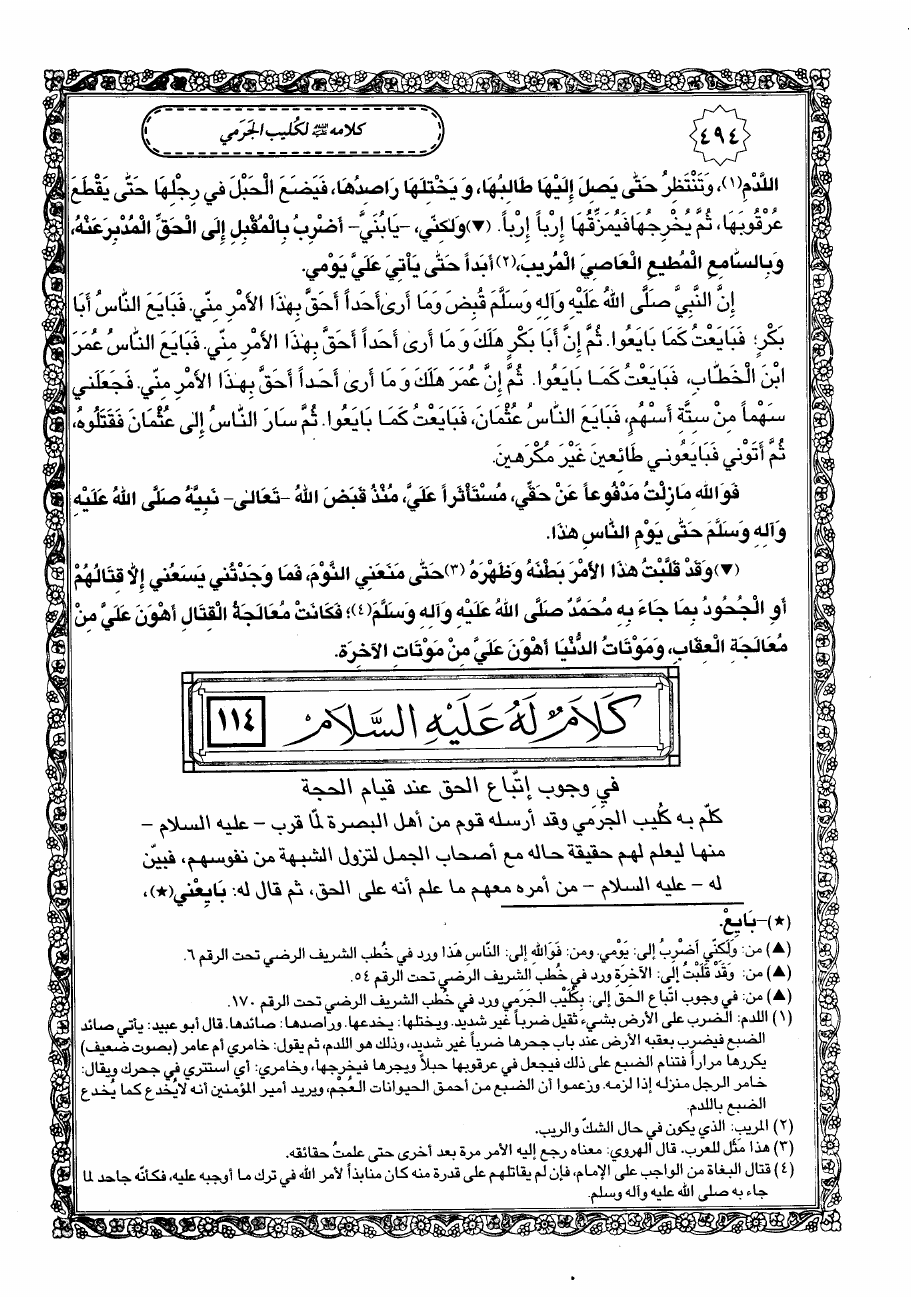 ٤٩٤
كلامه عليه السلام لكُليب الجَرَمي
اللَّدْمِ(١)، وَتَنْتَظِرُ حَتَّى يَصِلَ إِلَيْهَا طَالِبُهَا، وَ يَخْتِلَهَا رَاصِدُهَا، فَيَضَعَ الْحَبْلَ في رِجْلِهَا حَتَّى يَقْطَعَ
عُرْقُوبَهَا، ثُمَّ يُخْرِجُهَا فَيُمَزِّقُهَا إِرْباً إِرْباً. (▼)وَلكِنّي، -يَابُنَيَّ- أَضْرِبُ بِالْمُقْبِلِ إِلَى الْحَقِّ الْمُدْبِرَ عَنْهُ،
وَبِالسَّامِعِ الْمُطيعِ الْعَاصِيَ الْمُريبَ،(٢) أَبَداً حَتَّى يَأْتِيَ عَلَيَّ يَوْمي.
إِنَّ النَّبِيَّ صَلَّى اللهُ عَلَيْهِ وَآلِهِ وَسَلَّمَ قُبِضَ وَمَا أَرى أَحَداً أَحَقَّ بِهذَا الأَمْرِ مِنّي. فَبَايَعَ النَّاسُ أَبَا
بَكْرٍ؛ فَبَايَعْتُ كَمَا بَايَعُوا. ثُمَّ إِنَّ أَبَا بَكْرٍ هَلَكَ وَ مَا أَرى أَحَداً أَحَقَّ بِهذَا الأَمْرِ مِنّي. فَبَايَعَ النَّاسُ عُمَرَ
ابْنَ الْخَطَّابِ، فَبَايَعْتُ كَمَا بَايَعُوا. ثُمَّ إِنَّ عُمَرَ هَلَكَ وَ مَا أَرى أَحَداً أَحَقَّ بِهذَا الأَمْرِ مِنّي. فَجَعَلَني
سَهْماً مِنْ سِتَّةِ أَسْهُمٍ، فَبَايَعَ النَّاسُ عُثْمَانَ، فَبَايَعْتُ كَمَا بَايَعُوا. ثُمَّ سَارَ النَّاسُ إِلى عُثْمَانَ فَقَتَلُوهُ،
ثُمَّ أَتَوْني فَبَايَعُوني طَائِعينَ غَيْرَ مُكْرَهينَ.
فَوَاللهِ مَازِلْتُ مَدْفُوعاً عَنْ حَقّي، مُسْتَأْثَراً عَلَيَّ، مُنْذُ قَبَضَ اللهُ -تَعَالى- نَبِيَّهُ صَلَّى اللهُ عَلَيْهِ
وَآلِهِ وَسَلَّمَ حَتَّى يَوْمِ النَّاسِ هذَا.
(▼)وَقَدْ قَلَّبْتُ هذَا الأَمْرَ بَطْنَهُ وَظَهْرَهُ (٣)حَتَّى مَنَعَنِي النَّوْمَ، فَمَا وَجَدْتُني يَسَعُني إِلاَّ قِتَالُهُمْ
أَوِ الْجُحُودُ بِمَا جَاءَ بِهِ مُحَمَّدٌ صَلَّى اللهُ عَلَيْهِ وَآلِهِ وَسَلَّمَ(٤)؛ فَكَانَتْ مُعَالَجَةُ الْقِتَالِ أَهْوَنَ عَلَيَّ مِنْ
مُعَالَجَةِ الْعِقَابِ، وَمَوْتَاتُ الدُّنْيَا أَهْوَنَ عَلَيَّ مِنْ مَوْتَاتِ الآخِرَةِ.
كَلَامٌ لَهُ عَلَيْهِ السَّلَامُ
١١٤
في وجوب إتّباع الحق عند قيام الحجة
كلّم به كُليب الجَرَمي وقد أرسله قوم من أهل البصرة لمّا قرب - عليه السلام -
منها ليعلم لهم حقيقة حاله مع أصحاب الجمل لتزول الشبهة من نفوسهم، فبيّن
له - عليه السلام - من أمره معهم ما علم أنه على الحق، ثم قال له: بَايِعْني(★)،
(★)-بَايِعْ.
(▲) من: وَلكِنّي أَضْرِبُ إلى: يَوْمي. ومن: فَوَاللهِ إلى: النَّاسِ هذَا ورد في خُطب الشريف الرضي تحت الرقم ٦.
(▲) من: وَقَدْ قَلَّبْتُ إلى: الآخِرَةِ ورد في خُطب الشريف الرضي تحت الرقم ٥٤.
(▲) من: في وجوب اتباع الحق إلى: بِكُلَيْبِ الجَرَمي ورد في خُطب الشريف الرضي تحت الرقم ١٧٠.
(١) اللدم: الضرب على الأرض بشيء ثقيل ضرباً غير شديد. ويختلها: يخدعها. وراصدها: صائدها. قال أبو عبيد: يأتي صائد
الضبع فيضرب بعقبه الأرض عند باب جحرها ضرباً غير شديد، وذلك هو اللدم، ثم يقول: خامري أم عامر (بصوت ضعيف)
يكررها مراراً فتنام الضبع على ذلك فيجعل في عرقوبها حبلاً ويجرها فيخرجها، وخامري: أي أستتري في جحرك ويقال:
خامر الرجل منزله إذا لزمه. وزعموا أن الضبع من أحمق الحيوانات العُجْم، ويريد أمير المؤمنين أنه لايُخدع كما يُخدع
الضبع باللدم.
(٢) المريب: الذي يكون في حال الشكّ والريب.
(٣) هذا مَثَل للعرب. قال الهروي: معناه رجع إليه الأمر مرة بعد أخرى حتى علمتُ حقائقه.
(٤) قتال البغاة من الواجب على الإمام، فإن لم يقاتلهم على قدرة منه كان منابذاً لأمر الله في ترك ما أوجبه عليه، فكأنّه جاحد لما
جاء به صلى الله عليه وآله وسلم.